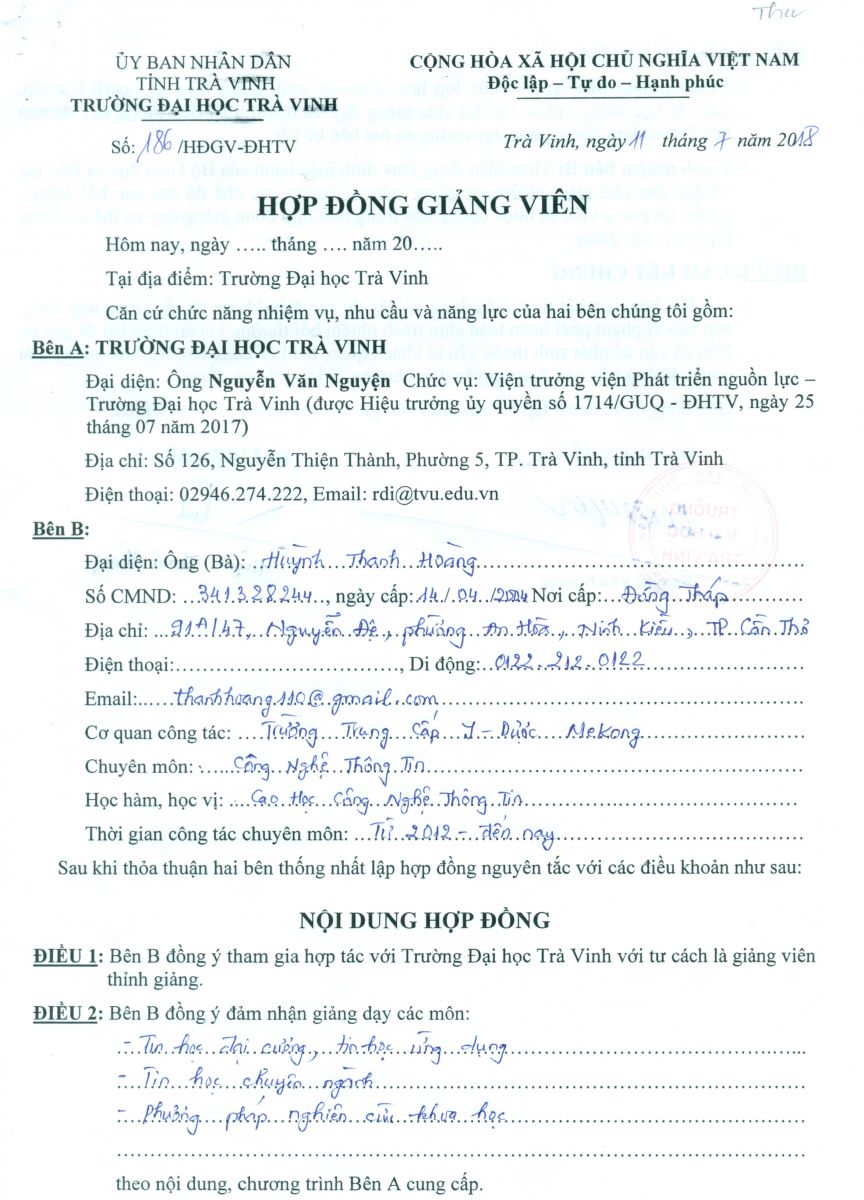 Thu
ỦY BAN NHÂN DÂN
TỈNH TRÀ VINH
TRƯỜNG ĐẠI HỌC TRÀ VINH
Số: 186 /HĐGV-ĐHTV
CỘNG HÒA XÃ HỘI CHỦ NGHĨA VIỆT NAM
Độc lập – Tự do – Hạnh phúc
Trà Vinh, ngày 11 tháng 7 năm 2018
HỢP ĐỒNG GIẢNG VIÊN
Hôm nay, ngày ….. tháng …. năm 20…..
Tại địa điểm: Trường Đại học Trà Vinh
Căn cứ chức năng nhiệm vụ, nhu cầu và năng lực của hai bên chúng tôi gồm:
Bên A: TRƯỜNG ĐẠI HỌC TRÀ VINH
Đại diện: Ông Nguyễn Văn Nguyện Chức vụ: Viện trưởng viện Phát triển nguồn lực –
Trường Đại học Trà Vinh (được Hiệu trưởng ủy quyền số 1714/GUQ - ĐHTV, ngày 25
tháng 07 năm 2017)
Địa chỉ: Số 126, Nguyễn Thiện Thành, Phường 5, TP. Trà Vinh, tỉnh Trà Vinh
Điện thoại: 02946.274.222, Email: rdi@tvu.edu.vn
Bên B:
Đại diện: Ông (Bà): Huỳnh Thanh Hoàng
Số CMND: 341328244, ngày cấp: 14/04/2004 Nơi cấp: Đồng Tháp
Địa chỉ: 91A/47, Nguyễn Đệ, phường An Hòa, Ninh Kiều, TP. Cần Thơ
Điện thoại:……………………………, Di động: 0122.212.0122
Email: thanhhoang110@gmail.com
Cơ quan công tác: Trường Trung Cấp Y - Dược MeKong
Chuyên môn: Công Nghệ Thông Tin
Học hàm, học vị: Cao Học Công Nghệ Thông Tin
Thời gian công tác chuyên môn: Từ 2012 - đến nay
Sau khi thỏa thuận hai bên thống nhất lập hợp đồng nguyên tắc với các điều khoản như sau:
NỘI DUNG HỢP ĐỒNG
ĐIỀU 1: Bên B đồng ý tham gia hợp tác với Trường Đại học Trà Vinh với tư cách là giảng viên
thỉnh giảng.
ĐIỀU 2: Bên B đồng ý đảm nhận giảng dạy các môn:
- Tin học đại cương, tin học ứng dụng
- Tin học chuyên ngành
- Phương pháp nghiên cứu khoa học
theo nội dung, chương trình Bên A cung cấp.